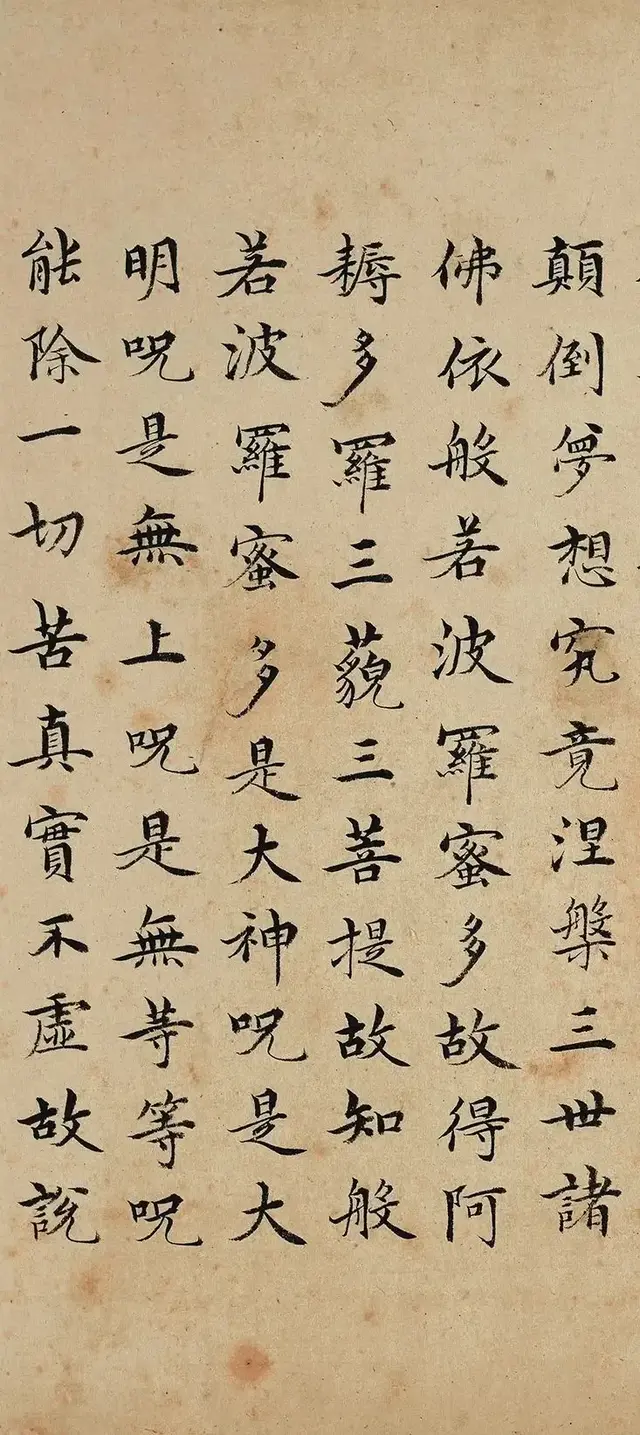 顛倒夢想究竟涅槃三世諸
佛依般若波羅蜜多故得阿
耨多羅三藐三菩提故知般
若波羅蜜多是大神呪是大
明呪是無上呪是無等等呪
能除一切苦真實不虛故說